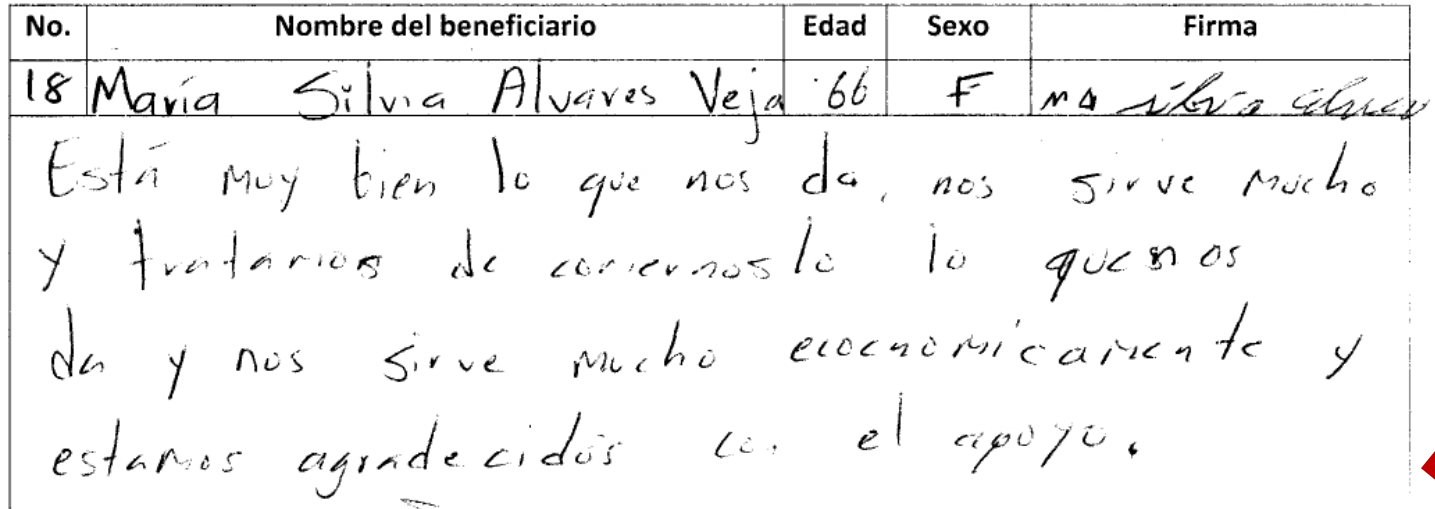 No. Nombre del beneficiario Edad Sexo Firma
18 María Silvia Alvares Veja 66 F Ma silvia
Está muy bien lo que nos da, nos sirve mucho
y tratamos de comernoslo lo que nos
da y nos sirve mucho ecocnomícamente y
estamos agradecidos con el apoyo.